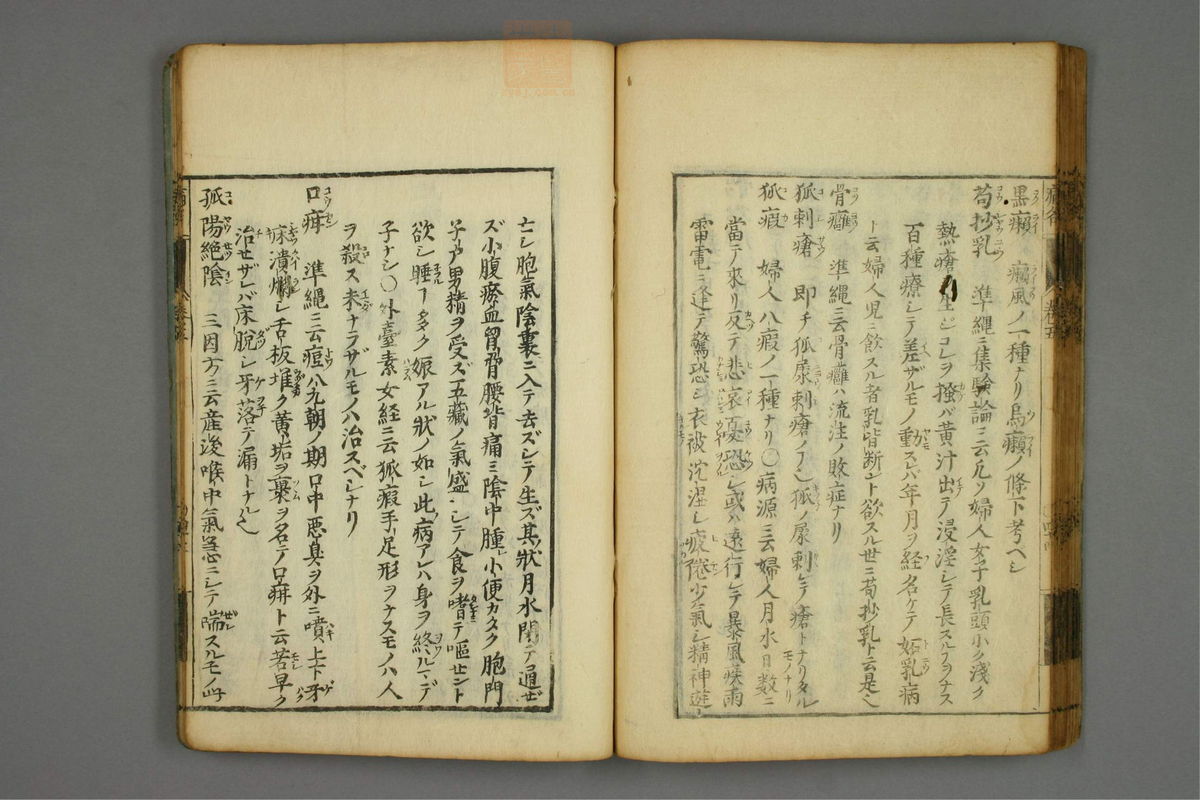 黒癩 癩風ノ一種ナリ烏癩ノ條下考ヘシ
茍抄乳 準縄ニ集験論ニ云凡ソ婦人女子乳頭小ク淺ク
熱瘡生ジコレヲ搔バ黄汁出テ浸淫シテ長スルヿヲナス
百種療シテ差ザルモノ動スレバ年月ヲ経名ケテ妬乳病
ト云婦人児ニ飲スル者乳皆断ント欲スル世ニ茍抄乳ト云是也
骨癰 準縄ニ云骨癰ハ流注ノ敗症ナリ
狐刺瘡 即チ狐尿刺瘡ノヿ狐ノ尿刺シテ瘡トナリタルモノナリ
狐瘕 婦人八瘕ノ一種ナリ○病源ニ云婦人月水日数ニ
當テ來リ反テ悲哀憂恐シ或ハ遠行シテ暴風疾雨
雷電ニ逢テ驚恐シ衣被沈湿シ疲倦少氣シ精神遊
亡シ胞氣陰裏ニ入テ去ズシテ生ズ其狀月水閉テ通ゼ
ズ小腹瘀血留滞腰背痛ミ陰中腫レ小便カタク胞門
子戸男精ヲ受ズ五藏ノ氣盛ニシテ食ヲ嗜テ嘔セント
欲シ睡ヿ多ク娠アル狀ノ如シ此病アレハ身ヲ終ルマデ
子ナシ○外臺素女経ニ云狐瘕手足形ヲナスモノハ人
ヲ殺ス未ナラザルモノハ治スベシナリ
口疳 準縄ニ云痘八九朝ノ期口中悪臭ヲ外ニ噴上下牙
床潰爛シ舌板堆ク黄垢ヲ裹ヲ名テ口疳ト云若早ク
治せザレバ床脱シ牙落テ漏トナル也
孤陽絶陰 三因方ニ云産後喉中氣急ニシテ喘スルモノ此